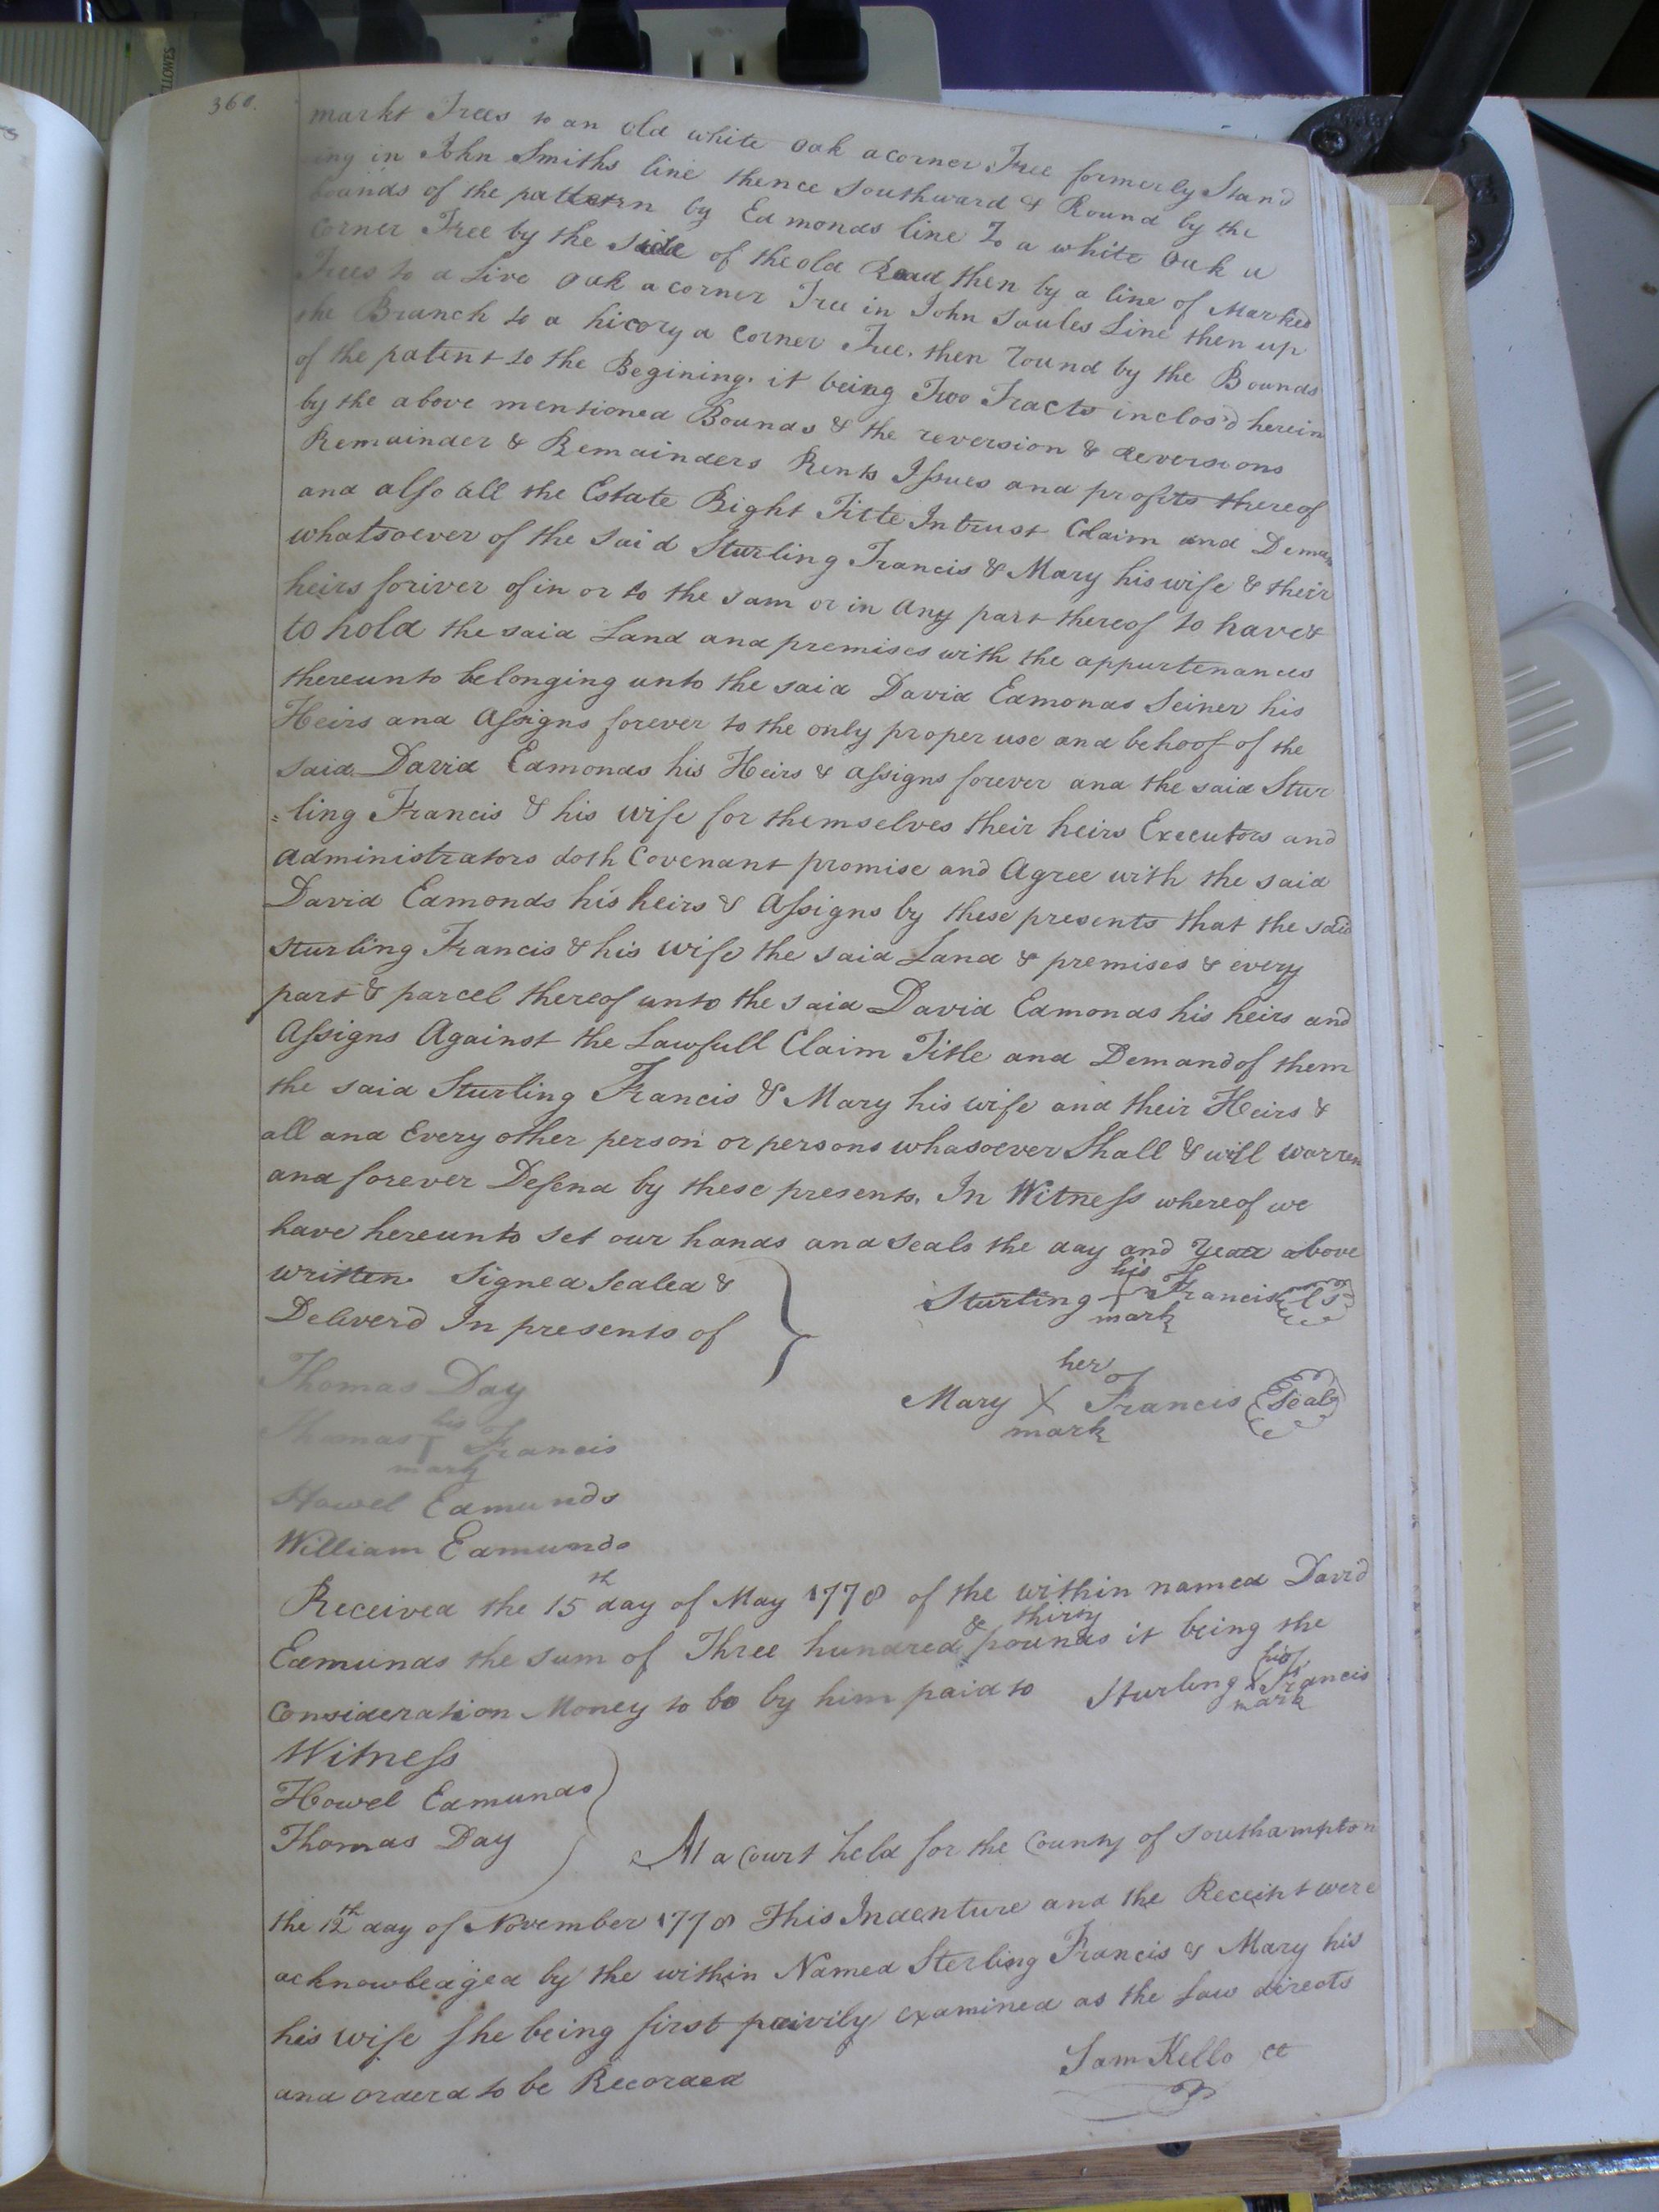 FELLOWES
360.
markt Trees to an old white oak a corner Tree formerly Stand
ing in John Smiths line thence Southward & Round by the
bounds of the pattern by Edmonds line To a white Oak a
Corner Tree by the side of the old Road, then by a line of Marked
Trees to a Live Oak a corner Tree in John Saules Line then up
the Branch to a hicory a Corner Tree, then round by the Bounds
of the patent to the Begining. it being Two Tracts inclos'd herein
by the above mentioned Bounds & the reversion & reversions
Remainder & Remainders Rents Issues and profits thereof
and also all the Estate Right Title Intrust Claim and Deman
whatsoever of the said Sturling Francis & Mary his wife & their
heirs foriver of in or to the sam or in any part thereof to have &
to hold the said Land and premises with the appurtenances
thereunto belonging unto the said David Edmonds Seiner his
Heirs and Assigns forever to the only proper use and behoof of the
said David Edmonds his Heirs & assigns forever and the said Stur
=ling Francis & his wife for themselves their heirs Executors and
administrators doth Covenant promise and Agree with the said
David Edmonds his heirs & Assigns by these presents that the said
Sturling Francis & his wife the said Land & premises & every
part & parcel thereof unto the said David Edmonds his heirs and
Assigns Against the Lawfull Claim Title and Demand of them
the said Sturling Francis & Mary his wife and their Heirs &
all and Every other person or persons whasoever Shall & will warren
and forever Defend by these presents. In Witness whereof we
have hereunto set our hands and seals the day and Year above
written. Signed Sealed &
Deliverd In presents of
Sturling his mark Francis L S
Mary her X mark Francis Seal
Thomas Day
Thomas his mark Francis
Howel Edmunds
William Edmunds
Received the 15th day of May 1778 of the within named David
Edmunds the sum of Three hundred & thirty pounds it being the
Consideration Money to be by him paid to Sturling his X mark Francis
Witness
Howel Edmunds
Thomas Day
At a Court held for the County of Southampton
the 12th day of November 1778 This Indenture and the Receipt were
acknowledged by the within Named Sterling Francis & Mary his
his wife she being first privily examined as the Law directs
and orderd to be Recorded
Sam Kello